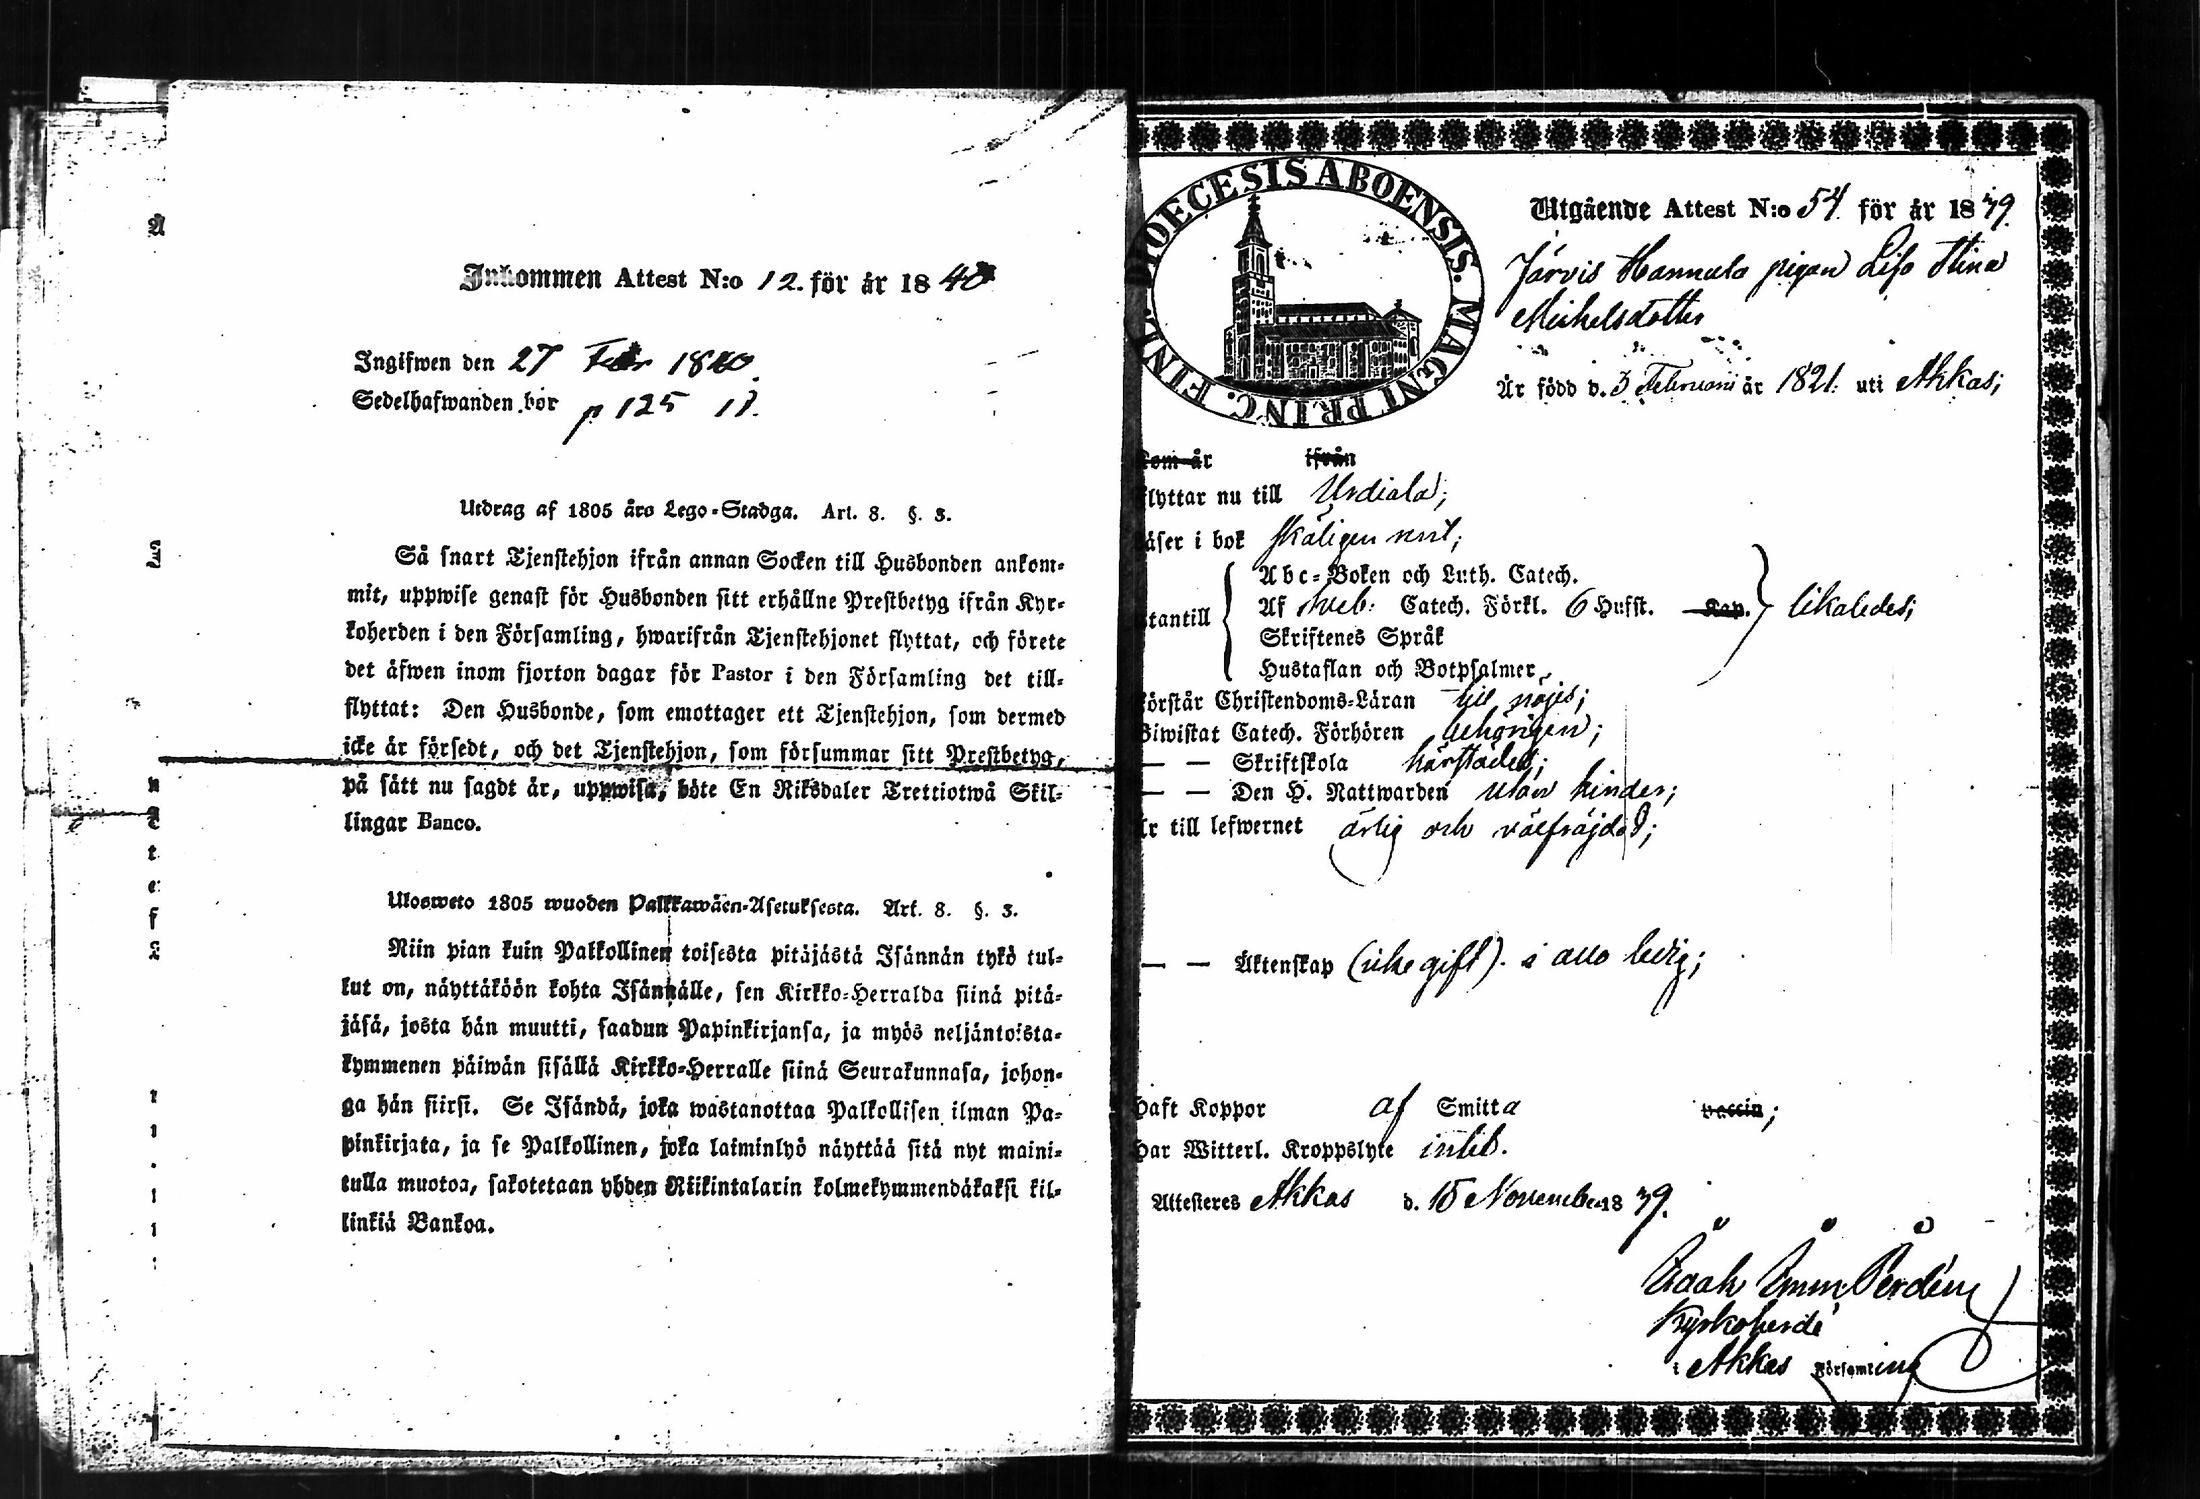 Inkommen Attest N:o 12. för år 1840
Ingifwen den 27 Febr 1840.
Sedelhafwanden bor p 125 11.
Utdrag af 1805 års Lego-Stadga. Art. 8. §. 3.
Så snart Tjenstehjon ifrån annan Socken till Husbonden ankom-
mit, uppwise genast för Husbonden sitt erhållne Prestbetyg ifrån Kyr-
koherden i den Församling, hwarifrån Tjenstehjonet flyttat, och förete
det äfwen inom fjorton dagar för Pastor i den Församling det till-
flyttat: Den Husbonde, som emottager ett Tjenstehjon, som dermed
icke är försedt, och det Tjenstehjon, som försummar sitt Prestbetyg,
på sätt nu sagdt är, uppwisa, böte En Riksdaler Trettiotwå Skil-
lingar Banco.
Ulosweto 1805 wuoden Palkkawäen-Asetuksesta. Art. 8. §. 3.
Niin pian kuin Palkollinen toisesta pitäjästä Isännän tykö tul-
kut on, näyttäköön kohta Isännälle, sen Kirkko-Herralda siinä pitä-
jäsä, josta hän muutti, saadun Papinkirjansa, ja myös neljäntoista-
kymmenen päiwän sisällä Kirkko-Herralle siinä Seurakunnasa, johon-
ga hän siirsi. Se Isändä, joka wastanottaa Palkollisen ilman Pa-
pinkirjata, ja se Palkollinen, joka laiminlyö näyttää sitä nyt maini-
tulla muotoa, sakotetaan yhden Riikintalarin kolmekymmendäkaksi kil-
linkiä Bankoa.
DIOECESIS ABOENSIS. MAGNI PRINC. FINL.
Utgående Attest N:o 54. för år 1839.
Järvis Hannula pigan Lisa Stina
Michelsdotter
Är född d. 3 Februarii år 1821. uti Akkas;
kom år ifrån
flyttar nu till Urdiala;
läser i bok skäligen rent;
Abc-Boken och Luth. Catech.
utantill Af Sveb: Catech. Förkl. 6 Hufst. Kap. likaledes;
Skriftenes Språk
Hustaflan och Botpsalmer
förstår Christendoms-Läran till nöjes;
Biwistat Catech. Förhören behörigen;
— — Skriftskola härstädes;
— — Den H. Nattwarden utan hinder;
är till lefwernet ärlig och välfräjdad;
— — Äktenskap (icke gift). i allo ledig;
haft Koppor af Smitta vaccin;
har Witterl. Kroppslyte intet.
Attesteres Akkas d. 15 November 1839.
Kyrkoherde
i Akkas Församling